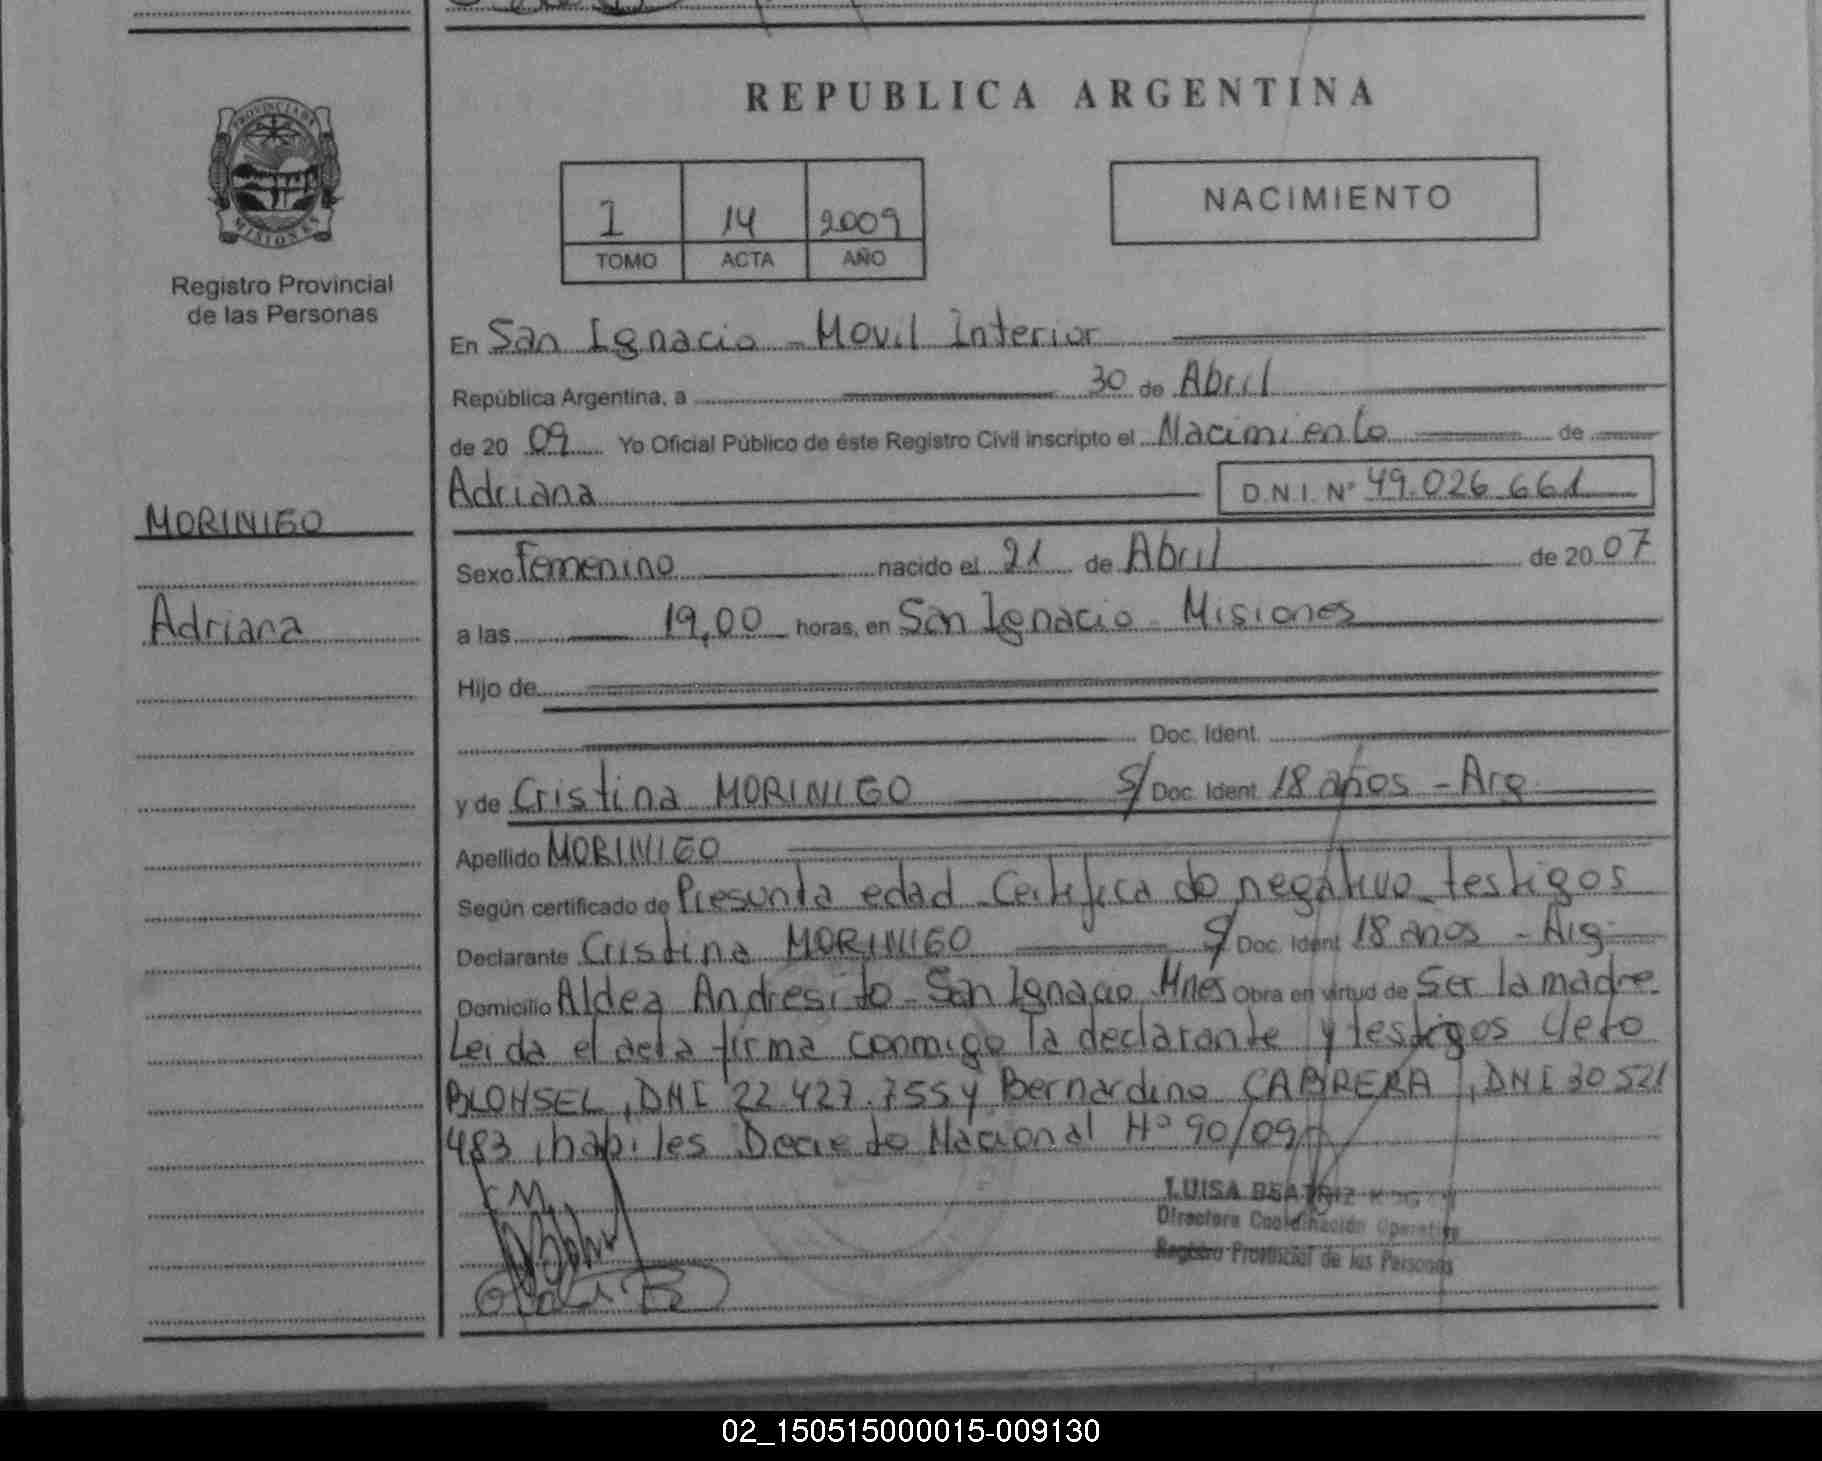 REPUBLICA ARGENTINA
PROVINCIA DE
MISIONES
Registro Provincial
de las Personas
1 14 2009
TOMO ACTA AÑO
NACIMIENTO
En San Ignacio - Movil Interior
República Argentina, a 30 de Abril
de 20 09 Yo Oficial Público de éste Registro Civil inscripto el Nacimiento de
Adriana D.N.I. Nº 49.026.661
MORINIGO
Adriana
Sexo Femenino nacido el 21 de Abril de 20 07
a las 19,00 horas, en San Ignacio - Misiones
Hijo de
Doc. Ident.
y de Cristina MORINIGO S/ Doc. Ident. 18 años - Arg.
Apellido MORINIGO
Según certificado de Presunta edad - Certifica do negativo - testigos
Declarante Cristina MORINIGO S/ Doc. Ident. 18 años - Arg.
Domicilio Aldea Andresito - San Ignacio Mnes Obra en virtud de Ser la madre.
Leida el acta firma conmigo la declarante y testigos
DNI 22.427.755 y Bernardino CABRERA, DNI 30 521
483, habiles Decreto Nacional Nº 90/09
LUISA BEATRIZ
Directora Coordinación Operativa
Registro Provincial de las Personas
02_150515000015-009130